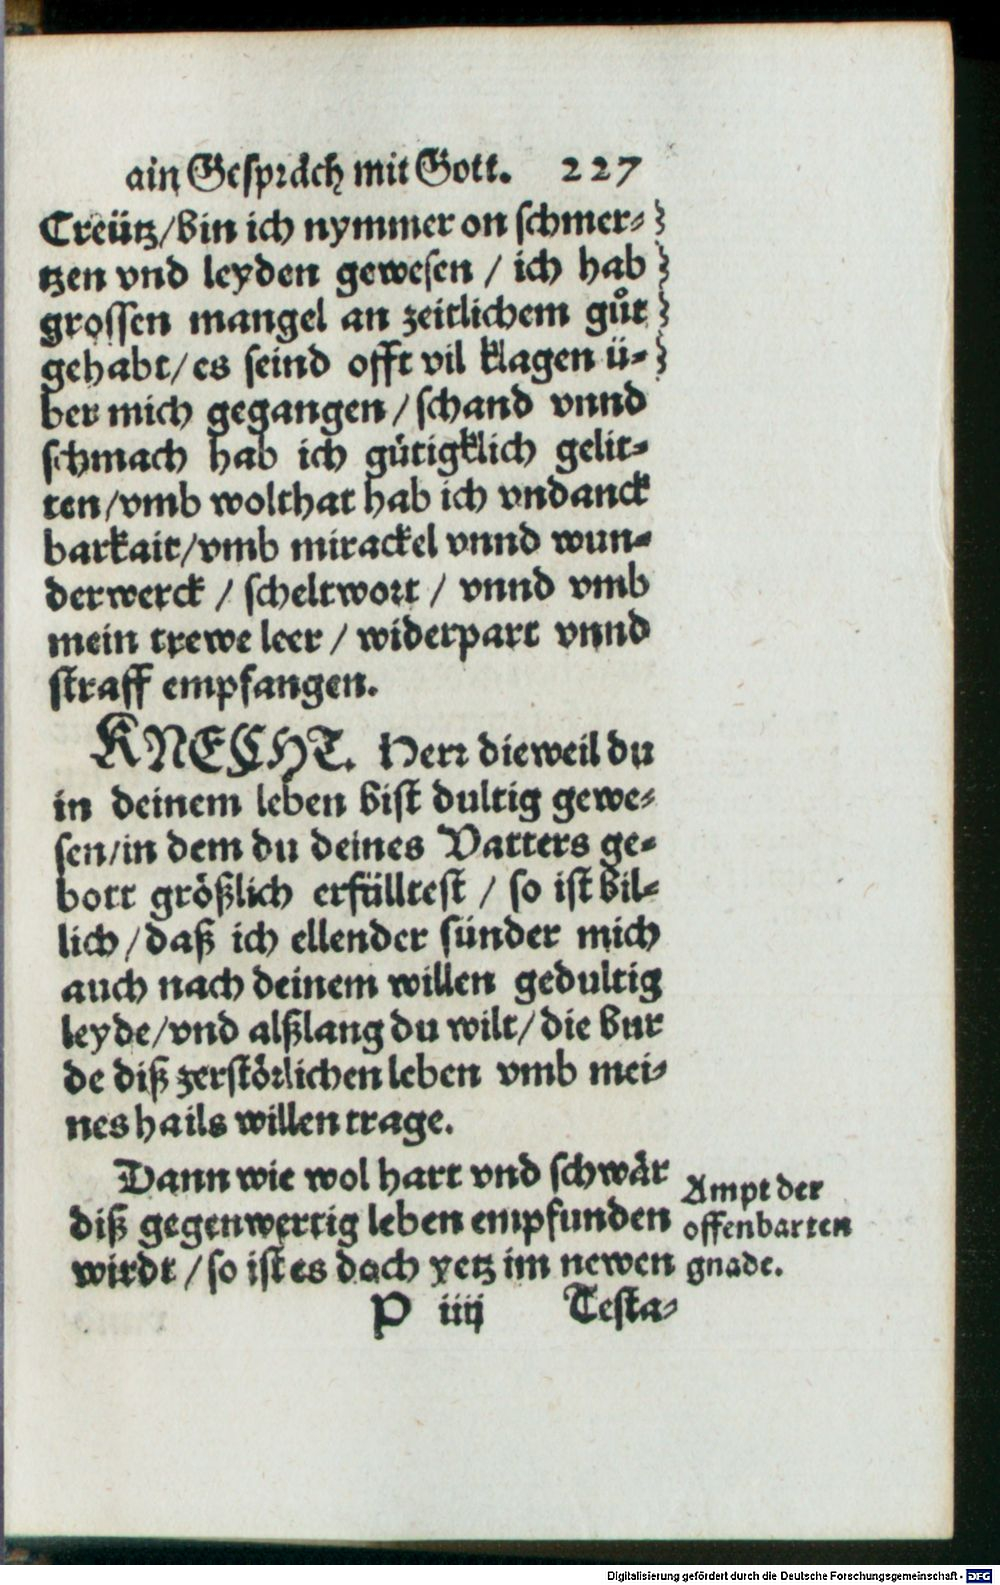 ain Gespräch mit Gott. 227
Creütz/bin ich nymmer on schmer-
tzen vnd leyden gewesen / ich hab
grossen mangel an zeitlichem gůt
gehabt/es seind offt vil klagen ü-
ber mich gegangen / schand vnnd
schmach hab ich gütigklich gelit-
ten/vmb wolthat hab ich vndanck
barkait/vmb mirackel vnnd wun-
derwerck / scheltwort / vnnd vmb
mein trewe leer / widerpart vnnd
straff empfangen.
KNECHT. Herr dieweil du
in deinem leben bist dultig gewe-
sen/in dem du deines Vatters ge-
bott größlich erfülltest / so ist bil-
lich / daß ich ellender sünder mich
auch nach deinem willen gedultig
leyde/vnd alßlang du wilt/die bur
de diß zerstörlichen leben vmb mei-
nes hails willen trage.
Dann wie wol hart vnd schwär
diß gegenwertig leben empfunden
wirdt / so ist es doch yetz im newen
Ampt der
offenbarten
gnade.
P iiij Testa-
Digitalisierung gefördert durch die Deutsche Forschungsgemeinschaft - DFG